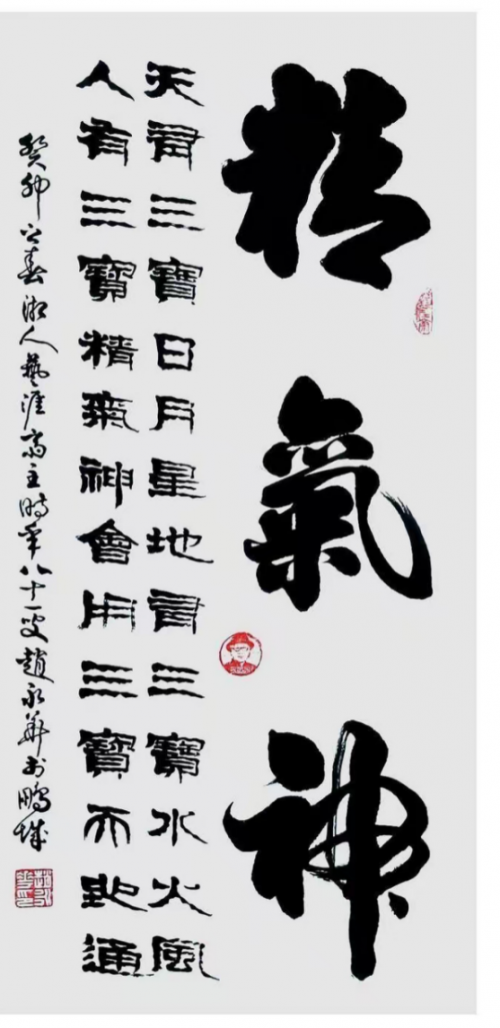 精氣神
天有三寶日月星地有三寶水火風
人有三寶精氣神會用三寶天地通
癸卯之春湘人藝涯斋主時年八十一叟趙永華书鵬城